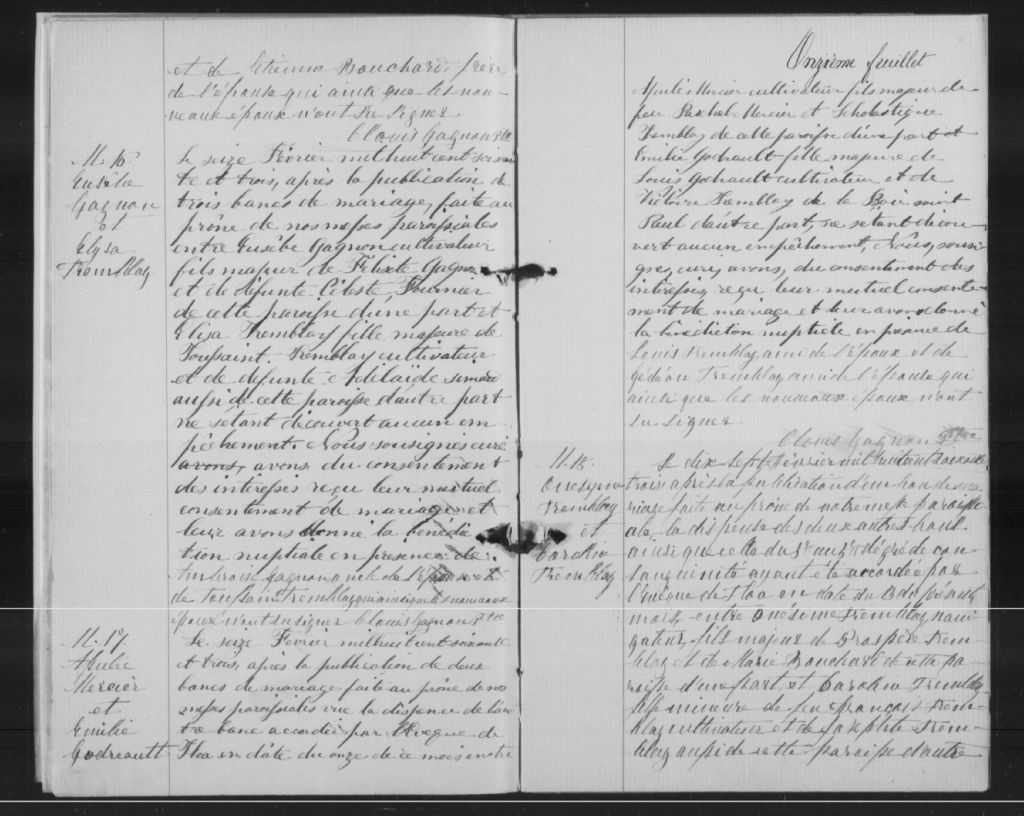 et de Etienne Bouchard frère
de l'épouse qui ainsi que les nou-
veaux époux n'ont su signer
Clovis Gagnon Ptre
M. 16.
Eusèbe
Gagnon
et
Elysa
Tremblay
Le seize Février mil huit cent soixan
te et trois, après la publication de
trois bancs de mariage, faite au
prône de nos messes paroissiales
entre Eusèbe Gagnon cultivateur
fils majeur de Felixte Gagnon
et de défunte Céleste Fournier
de cette paroisse d'une part et
Elisa Tremblay fille majeure de
Toussaint Tremblay cultivateur
et de défunte Adélaïde Simard
aussi de cette paroisse d'autre part
ne s'étant découvert aucun em
pêchement. Nous soussigné curé
avons, avons du consentement
des intéressés reçu leur mutuel
consentement de mariage et
leur avons donné la bénédic
tion nuptiale en presence de
Ambroise Gagnon oncle de l'époux et
de Toussaint Tremblay qui ainsi que les nouveaux
époux n'ont su signer Clovis Gagnon Ptre
M. 17
Afulé
Mercier
et
Emilie
Godreault
Le seize Fevrier mil huit cent soixante
et trois, après la publication de deux
bancs de mariage faite au prône de nos
messes paroissiales vue la dispense de l'au
tre banc accordée par l'Eveque de
Tloa en date du onze de ce mois entre
Onzième feuillet
Mercier cultivateur fils majeur de
feu Paschal Mercier et Scholastique
Tremblay de cette paroisse d'une part et
Emilie Godrault fille majeure de
Louis Godrault cultivateur et de
Victoire Tremblay de la Baie saint
Paul d'autre part, ne s'étant décou-
vert aucun empêchement, Nous, soussi-
gné, curé, avons, du consentement des
intéressés, reçu leur mutuel consente-
ment de mariage et leur avons donné
la bénédiction nuptiale en presence de
Louis Tremblay, ami de l'époux et de
Gédéon Tremblay, ami de l'épouse qui
ainsi que les nouveaux époux n'ont
su signer
Clovis Gagnon Ptre
M. 18.
Onesyme
Tremblay
et
Caroline
Tremblay
Le dix-sept Février mil huit cent soixante
trois après la publication d'un ban de ma
riage faite au prône de notre messe paroissi
ale, la dispense des deux autres bans
ainsi que celle du 3e au 3e dégré de con
sanguinité ayant été accordée par
l'Eveque de Tloa en date du 13 du présent
mois, entre Onésime Tremblay, navi
gateur, fils majeur de Prospère Trem
blay et de Marie Bouchard de cette pa
roisse d'une part, et Caroline Tremblay
fille mineure de feu François Trem-
blay cultivateur et de Josephte Trem-
blay aussi de cette paroisse d'autre